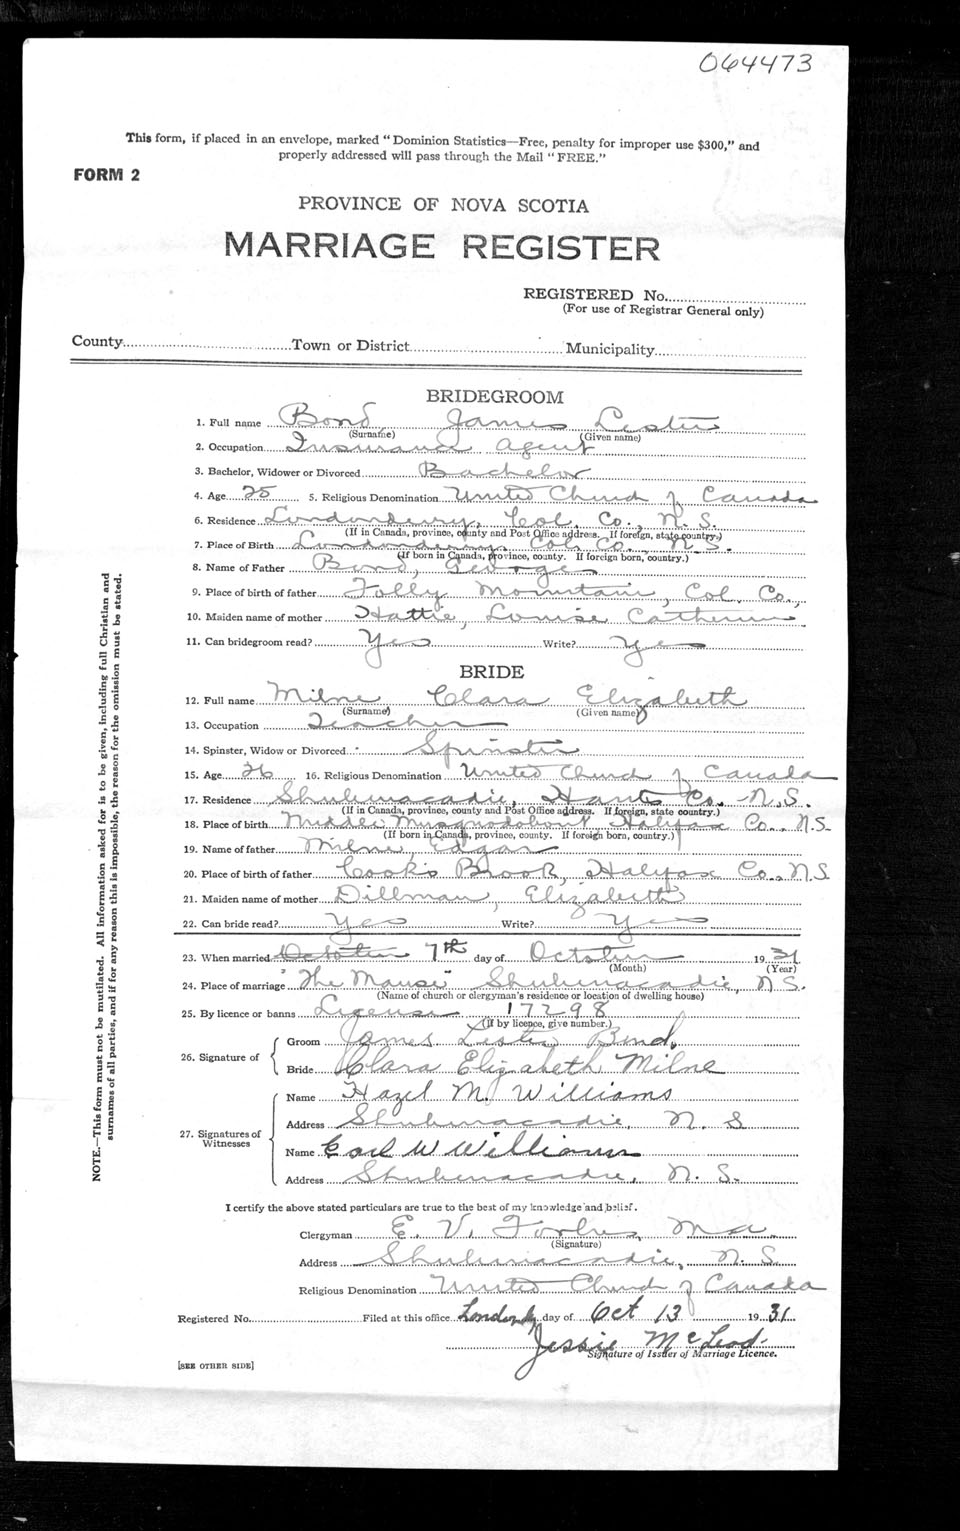 064473
This form, if placed in an envelope, marked "Dominion Statistics—Free, penalty for improper use $300," and
properly addressed will pass through the Mail "FREE."
FORM 2
PROVINCE OF NOVA SCOTIA
MARRIAGE REGISTER
REGISTERED No.
(For use of Registrar General only)
County Town or District Municipality
BRIDEGROOM
1. Full name Bond James Lester
(Surname) (Given name)
2. Occupation Insurance Agent
3. Bachelor, Widower or Divorced Bachelor
4. Age 25 5. Religious Denomination United Church of Canada
6. Residence Londonderry, Col. Co., N.S.
(If in Canada, province, county and Post Office address. If foreign, state country.)
7. Place of Birth Londonderry, Col. Co. N.S.
(If born in Canada, province, county. If foreign born, country.)
8. Name of Father Bond, George
9. Place of birth of father Folly Mountain, Col. Co.,
10. Maiden name of mother Hattie, Louise Catherine
11. Can bridegroom read? Yes Write? Yes
BRIDE
12. Full name Milne Clara Elizabeth
(Surname) (Given name)
13. Occupation Teacher
14. Spinster, Widow or Divorced Spinster
15. Age 26 16. Religious Denomination United Church of Canada
17. Residence Shubenacadie, Hants Co. N.S.
(If in Canada, province, county and Post Office address. If foreign, state country.)
18. Place of birth Middle Musquodoboit Halifax Co. N.S.
(If born in Canada, province, county. If foreign born, country.)
19. Name of father Milne, Edgar
20. Place of birth of father Cook's Brook, Halifax Co., N.S.
21. Maiden name of mother Dillman, Elizabeth
22. Can bride read? Yes Write? Yes
23. When married October 7th day of October 1931
(Month) (Year)
24. Place of marriage "The Manse" Shubenacadie, N.S.
(Name of church or clergyman's residence or location of dwelling house)
25. By licence or banns License 17298
(If by licence, give number.)
26. Signature of
Groom James Lester Bond,
Bride Clara Elizabeth Milne
27. Signatures of Witnesses
Name Hazel M. Williams
Address Shubenacadie, N. S
Name Carl W Williams
Address Shubenacadie, N. S.
I certify the above stated particulars are true to the best of my knowledge and belief.
Clergyman E. V. Forbes, M a
(Signature)
Address Shubenacadie, N. S.
Religious Denomination United Church of Canada
Registered No. Filed at this office Londondy day of Oct 13 1931
Jessie McLeod
Signature of Issuer of Marriage Licence.
[SEE OTHER SIDE]
NOTE.—This form must not be mutilated. All information asked for is to be given, including full Christian and
surnames of all parties, and if for any reason this is impossible, the reason for the omission must be stated.